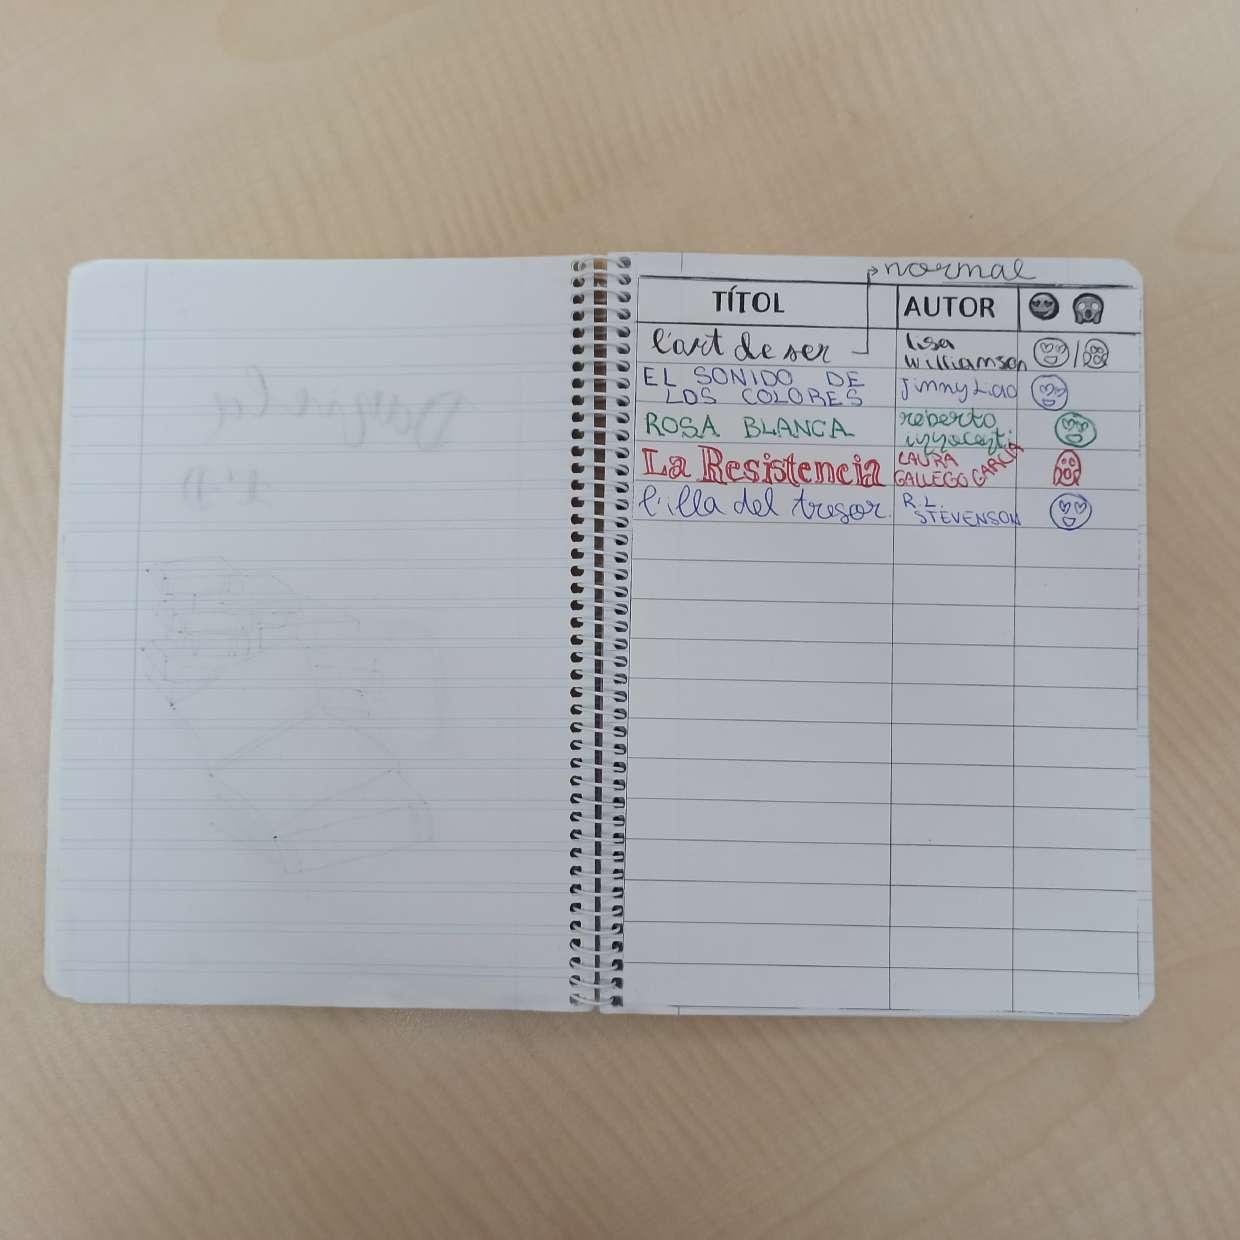 normal
TÍTOL AUTOR
l'art de ser
lisa
williamson
EL SONIDO DE
LOS COLORES
Jimmy Liao
ROSA BLANCA
roberto
innocenti
La Resistencia
LAURA
GALLEGO GARCIA
l'illa del tresor.
R.L.
STEVENSON